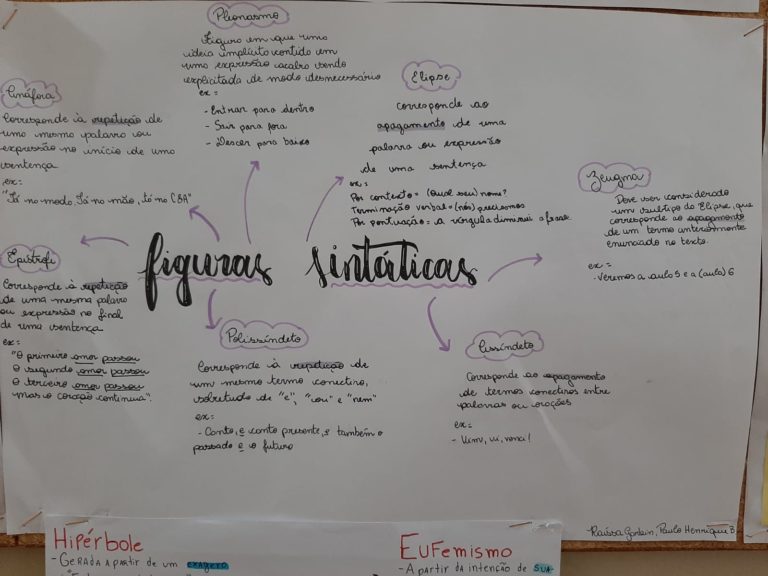 Pleonasmo
Figura em que uma
ideia implícita contida em
uma expressão acaba sendo
explicitada de modo desnecessário
ex:
- Entrar para dentro
- Sair para fora
- Descer para baixo
Elipse
corresponde ao
apagamento de uma
palavra ou expressão
de uma sentença
ex:
Por contexto = (Qual seu) nome?
Terminação verbal = (nós) precisamos
Por pontuação = a vírgula diminui a frase
Anáfora
Corresponde à repetição de
uma mesma palavra ou
expressão no início de uma
sentença
ex:
"Tá no moda, Tá na mão, tá na C&A"
Zeugma
Deve ser considerado
um subtipo da Elipse, que
corresponde ao apagamento
de um termo anteriormente
enunciado no texto.
ex:
- Veremos a aula 5 e a (aula) 6
figuras sintáticas
Epístrofi
Corresponde à repetição
de uma mesma palavra
ou expressão no final
de uma sentença
ex:
"O primeiro amor passou
O segundo amor passou
O terceiro amor passou
mas o coração continua".
Polissíndeto
Corresponde à repetição de
um mesmo termo conectivo,
sobretudo de "e", "ou" e "nem"
ex:
- Canto, e canto presente, e também o
passado e o futuro
Assíndeto
Corresponde ao apagamento
de termos conectivos entre
palavras ou orações
ex:
- Vim, vi, venci!
Raíssa Paulo Henrique B
Hipérbole
- Gerada a partir de um exagero
Eufemismo
- A partir da intenção de sua-